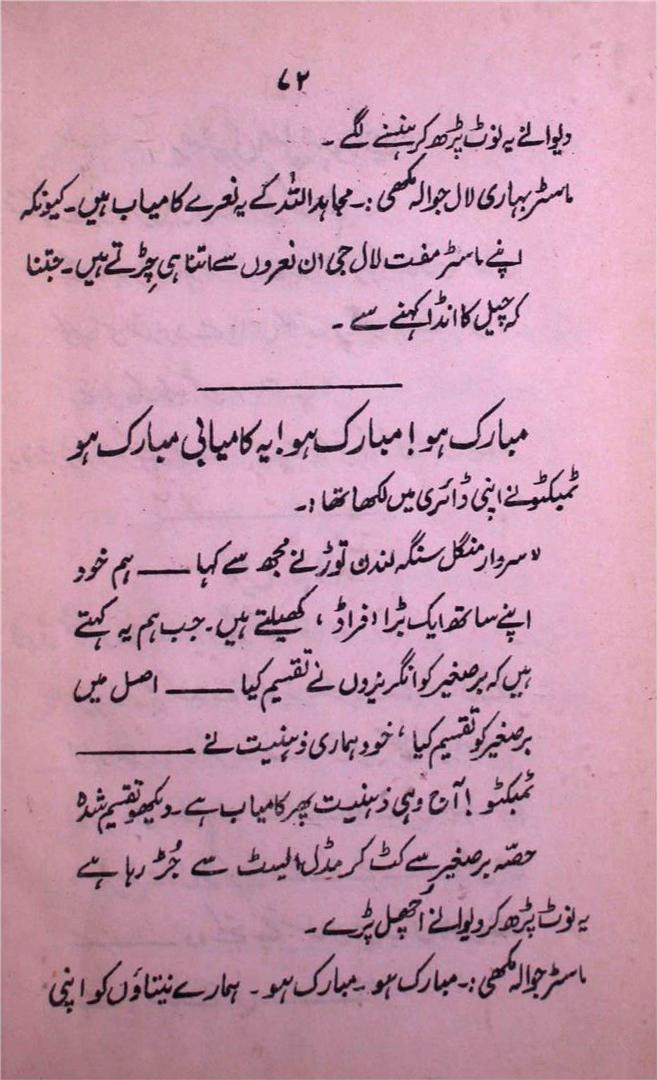 ۷۲
دیوانے یہ نوٹ پڑھ کر ہنسنے لگے ۔
ماسٹر بہاری لال جوالہ مکھی :۔ مجاہد اللہ کے یہ نعرے کامیاب ہیں۔ کیونکہ
اپنے ماسٹر مفت لال جی ان نعروں سے اتنا ہی چِڑتے ہیں۔ جتنا
کہ چیل کا انڈا کہنے سے ۔
مبارک ہو! مبارک ہو! یہ کامیابی مبارک ہو
ٹمبکٹو نے اپنی ڈائری میں لکھا تھا :۔
"سردار منگل سنگہ لندن توڑ نے مجھ سے کہا —— ہم خود
اپنے ساتھ ایک بڑا ,فراڈ، کھیلتے ہیں۔ جب ہم یہ کہتے
ہیں کہ برصغیر کو انگریزوں نے تقسیم کیا —— اصل میں
برصغیر کو تقسیم کیا، خود ہماری ذہنیت نے ——
ٹمبکٹو! آج وہی ذہنیت پھر کامیاب ہے۔ دیکھو تقسیم شدہ
حصّہ برصغیر سے کٹ کر مڈل ایسٹ سے جُڑ رہا ہے
یہ نوٹ پڑھ کر دیوانے اُچھل پڑے ۔
ماسٹر جوالہ مکھی :۔ مبارک ہو ۔ مبارک ہو ۔ ہمارے نیتاؤں کو اپنی